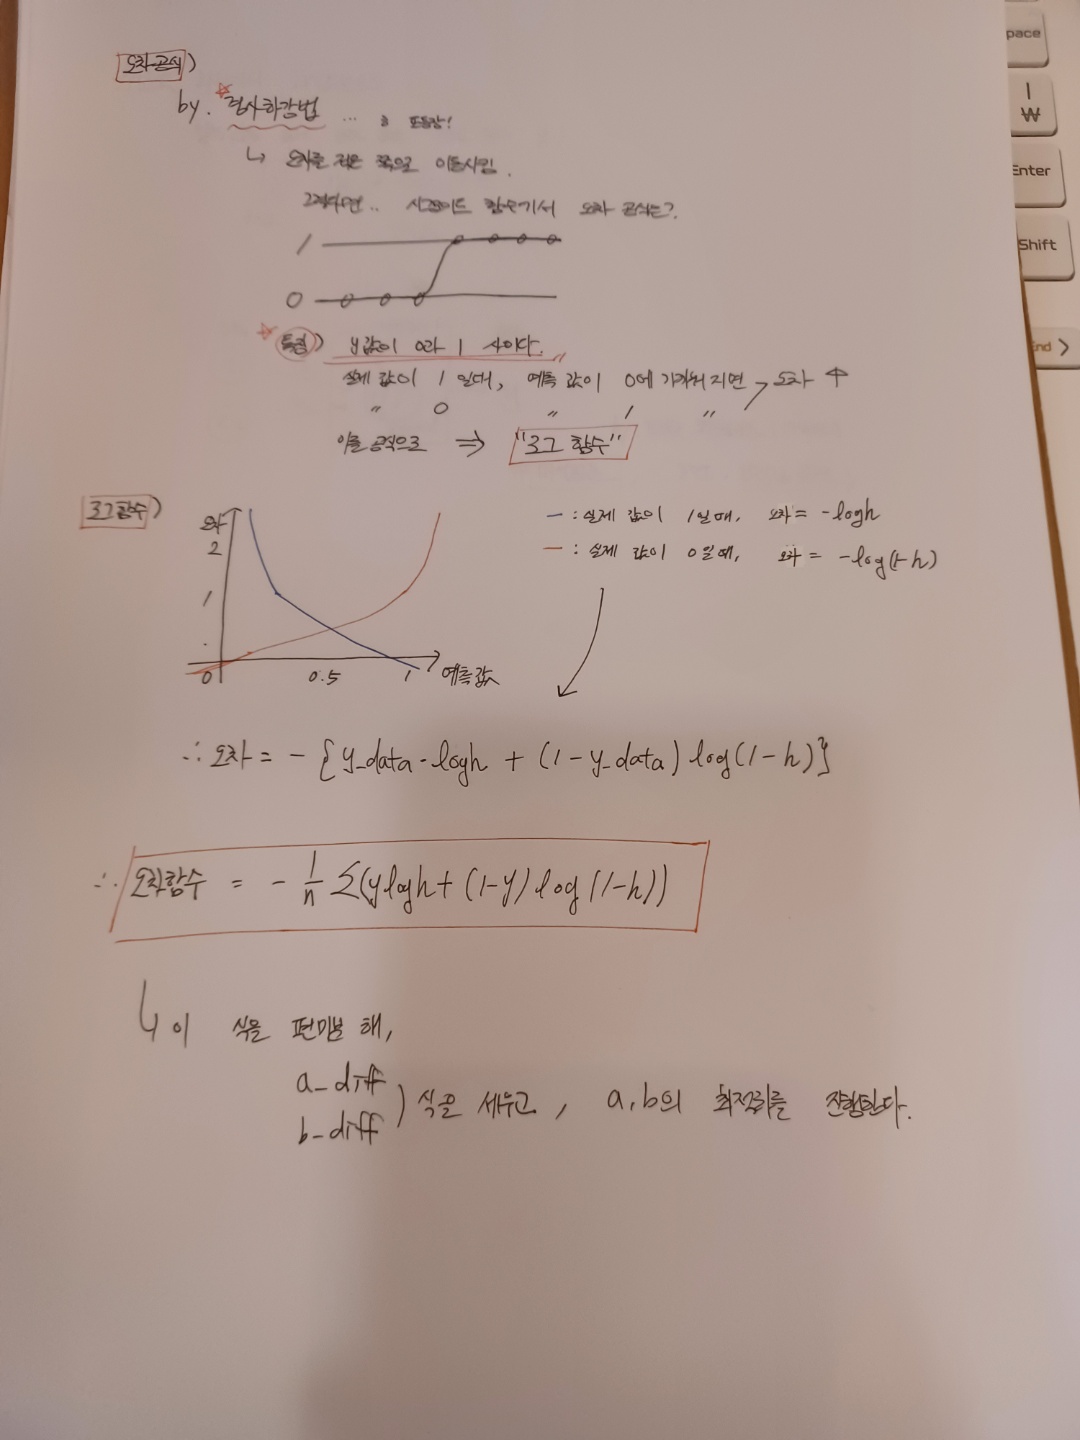 오차 공식)
by. 경사하강법 ... 또 등장!
↳ 오차를 작은 쪽으로 이동시킴.
그렇다면.. 시그모이드 함수에서 오차 공식은?
1
0
특징) y값이 0과 1 사이다.
실제 값이 1 일때, 예측 값이 0에 가까워지면 → 오차 ↑
〃 0 〃 1 〃
이를 공식으로 ⇒ "로그 함수"
로그함수)
오차
2
1
0 0.5 1 예측값
— : 실제 값이 1일때, 오차 = -logh
— : 실제 값이 0일때, 오차 = -log(1-h)
∴ 오차 = - {y_data·logh + (1-y_data) log(1-h)}
∴ 오차함수 = - 1/n Σ(ylogh + (1-y) log(1-h))
↳ 이 식을 편미분 해,
a_diff
b_diff ) 식을 세우고, a, b의 최적화를 진행한다.
pace
|
₩
Enter
Shift
End >